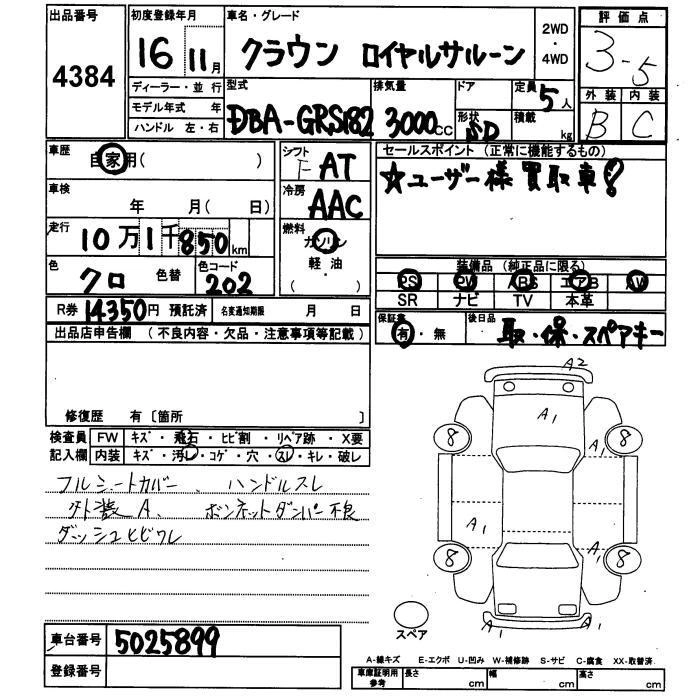 出品番号 初度登録年月 車名・グレード 評価点
4384 16 11月 クラウン ロイヤルサルーン 2WD・4WD 3-5
ディーラー・並行 型式 排気量 ドア 定員 5人 外装 内装
モデル年式 年 DBA-GRS182 3000cc 形状 SD 積載 kg B C
ハンドル 左・右
車歴 自家用( ) シフト F AT セールスポイント (正常に機能するもの)
☆ユーザー様買取車!
車検 年 月( 日) 冷房 AAC
走行 10万1千850km 燃料 ガソリン 軽油 ( )
装備品 (純正品に限る)
色 クロ 色替 色コード 202 PS PW ABS エアB AW
SR ナビ TV 本革
R券 14350円 預託済 名変通知期限 月 日
保証書 有・無 後日品 取・保・スペアキー
出品店申告欄 (不良内容・欠品・注意事項等記載)
修復歴 有〔箇所 〕
検査員 FW キズ・飛石・ヒビ割・リペア跡・X要
記入欄 内装 キズ・汚レ・コゲ・穴・スレ・キレ・破レ
フルシートカバー、ハンドルスレ
外装A、ボンネットダンパー不良
ダッシュヒビワレ
A2
A1
8 8
A1
A1
A1
8 8
A1 A1
スペア
車台番号 5025899
登録番号
A-線キズ E-エクボ U-凹み W-補修跡 S-サビ C-腐食 XX-取替済
車庫証明用参考 長さ cm 幅 cm 高さ cm